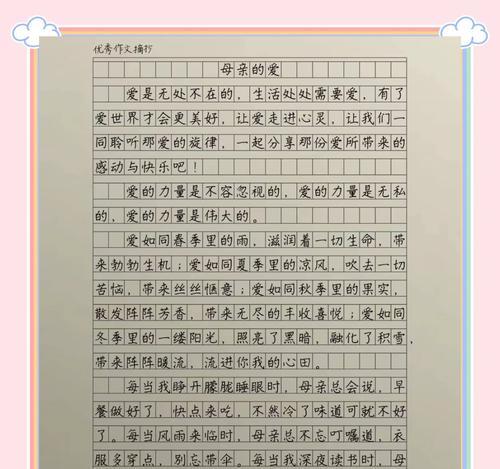 优秀作文摘抄
母亲的爱
爱是无处不在的，生活处处需要爱，有了
爱世界才会更美好，让爱走进心灵，让我们一
同聆听那爱的旋律，一起分享那份爱所带来的
感动与快乐吧！
爱的力量是不容忽视的，爱的力量是无私
的、爱的力量是伟大的。
爱如同春季里的雨，滋润着一切生命，带
来勃勃生机；爱如同夏季里的凉风，吹去一切
苦恼，带来丝丝惬意；爱如同秋季里的果实，
散发阵阵芳香，带来无尽的丰收喜悦；爱如同
冬季里的一缕阳光，照亮了黑暗，融化了积雪，
带来阵阵暖流，流进你我的心田。
每当我睁开朦胧睡眼时，母亲总会说，早
餐做好了，快点来吃，不然冷了味道可就不好
了。每当风雨来临时，母亲总不忘叮嘱道，衣
服多穿点，别忘带伞。每当我深夜读书时，母